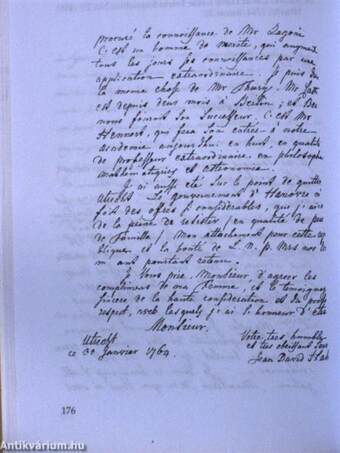 procuré la connoissance de Mr
C'est un homme de merite, qui augment
tous les jours ses connoissances par une
application extraordinaire. Je puis dire
la meme chose de Mr
est depuis deux mois à Berlin, et
nous fournit son Successeur. C'est Mr
Hennert, qui fera son entrée à notre
academie aujourdhui en huit, en qualité
de professeur extraordinaire en philosophie
mathematiques et astronomie.
J'ai aussi eté sur le point de quitter
Utrecht. Le gouvernement d'Hanovre
fait des ofres si considerables, que j'ai eu
de la peine de resister, en qualité de pere
de famille. Mon attachement pour cette
et la bonté de L. N. P. Mrs nos
m'ont pourtant retenu.
Je Vous prie, Monsieur, d'agréer les
complimens de ma femme, et le temoignage
sincere de la haute consideration et du profond
respect, avec lesquels j'ai l'honneur d'etre
Monsieur.
Utrecht
ce 30 Janvier 1764.
Votre tres humble
et tres obeissant
Jean David
176
Antikvárium.hu